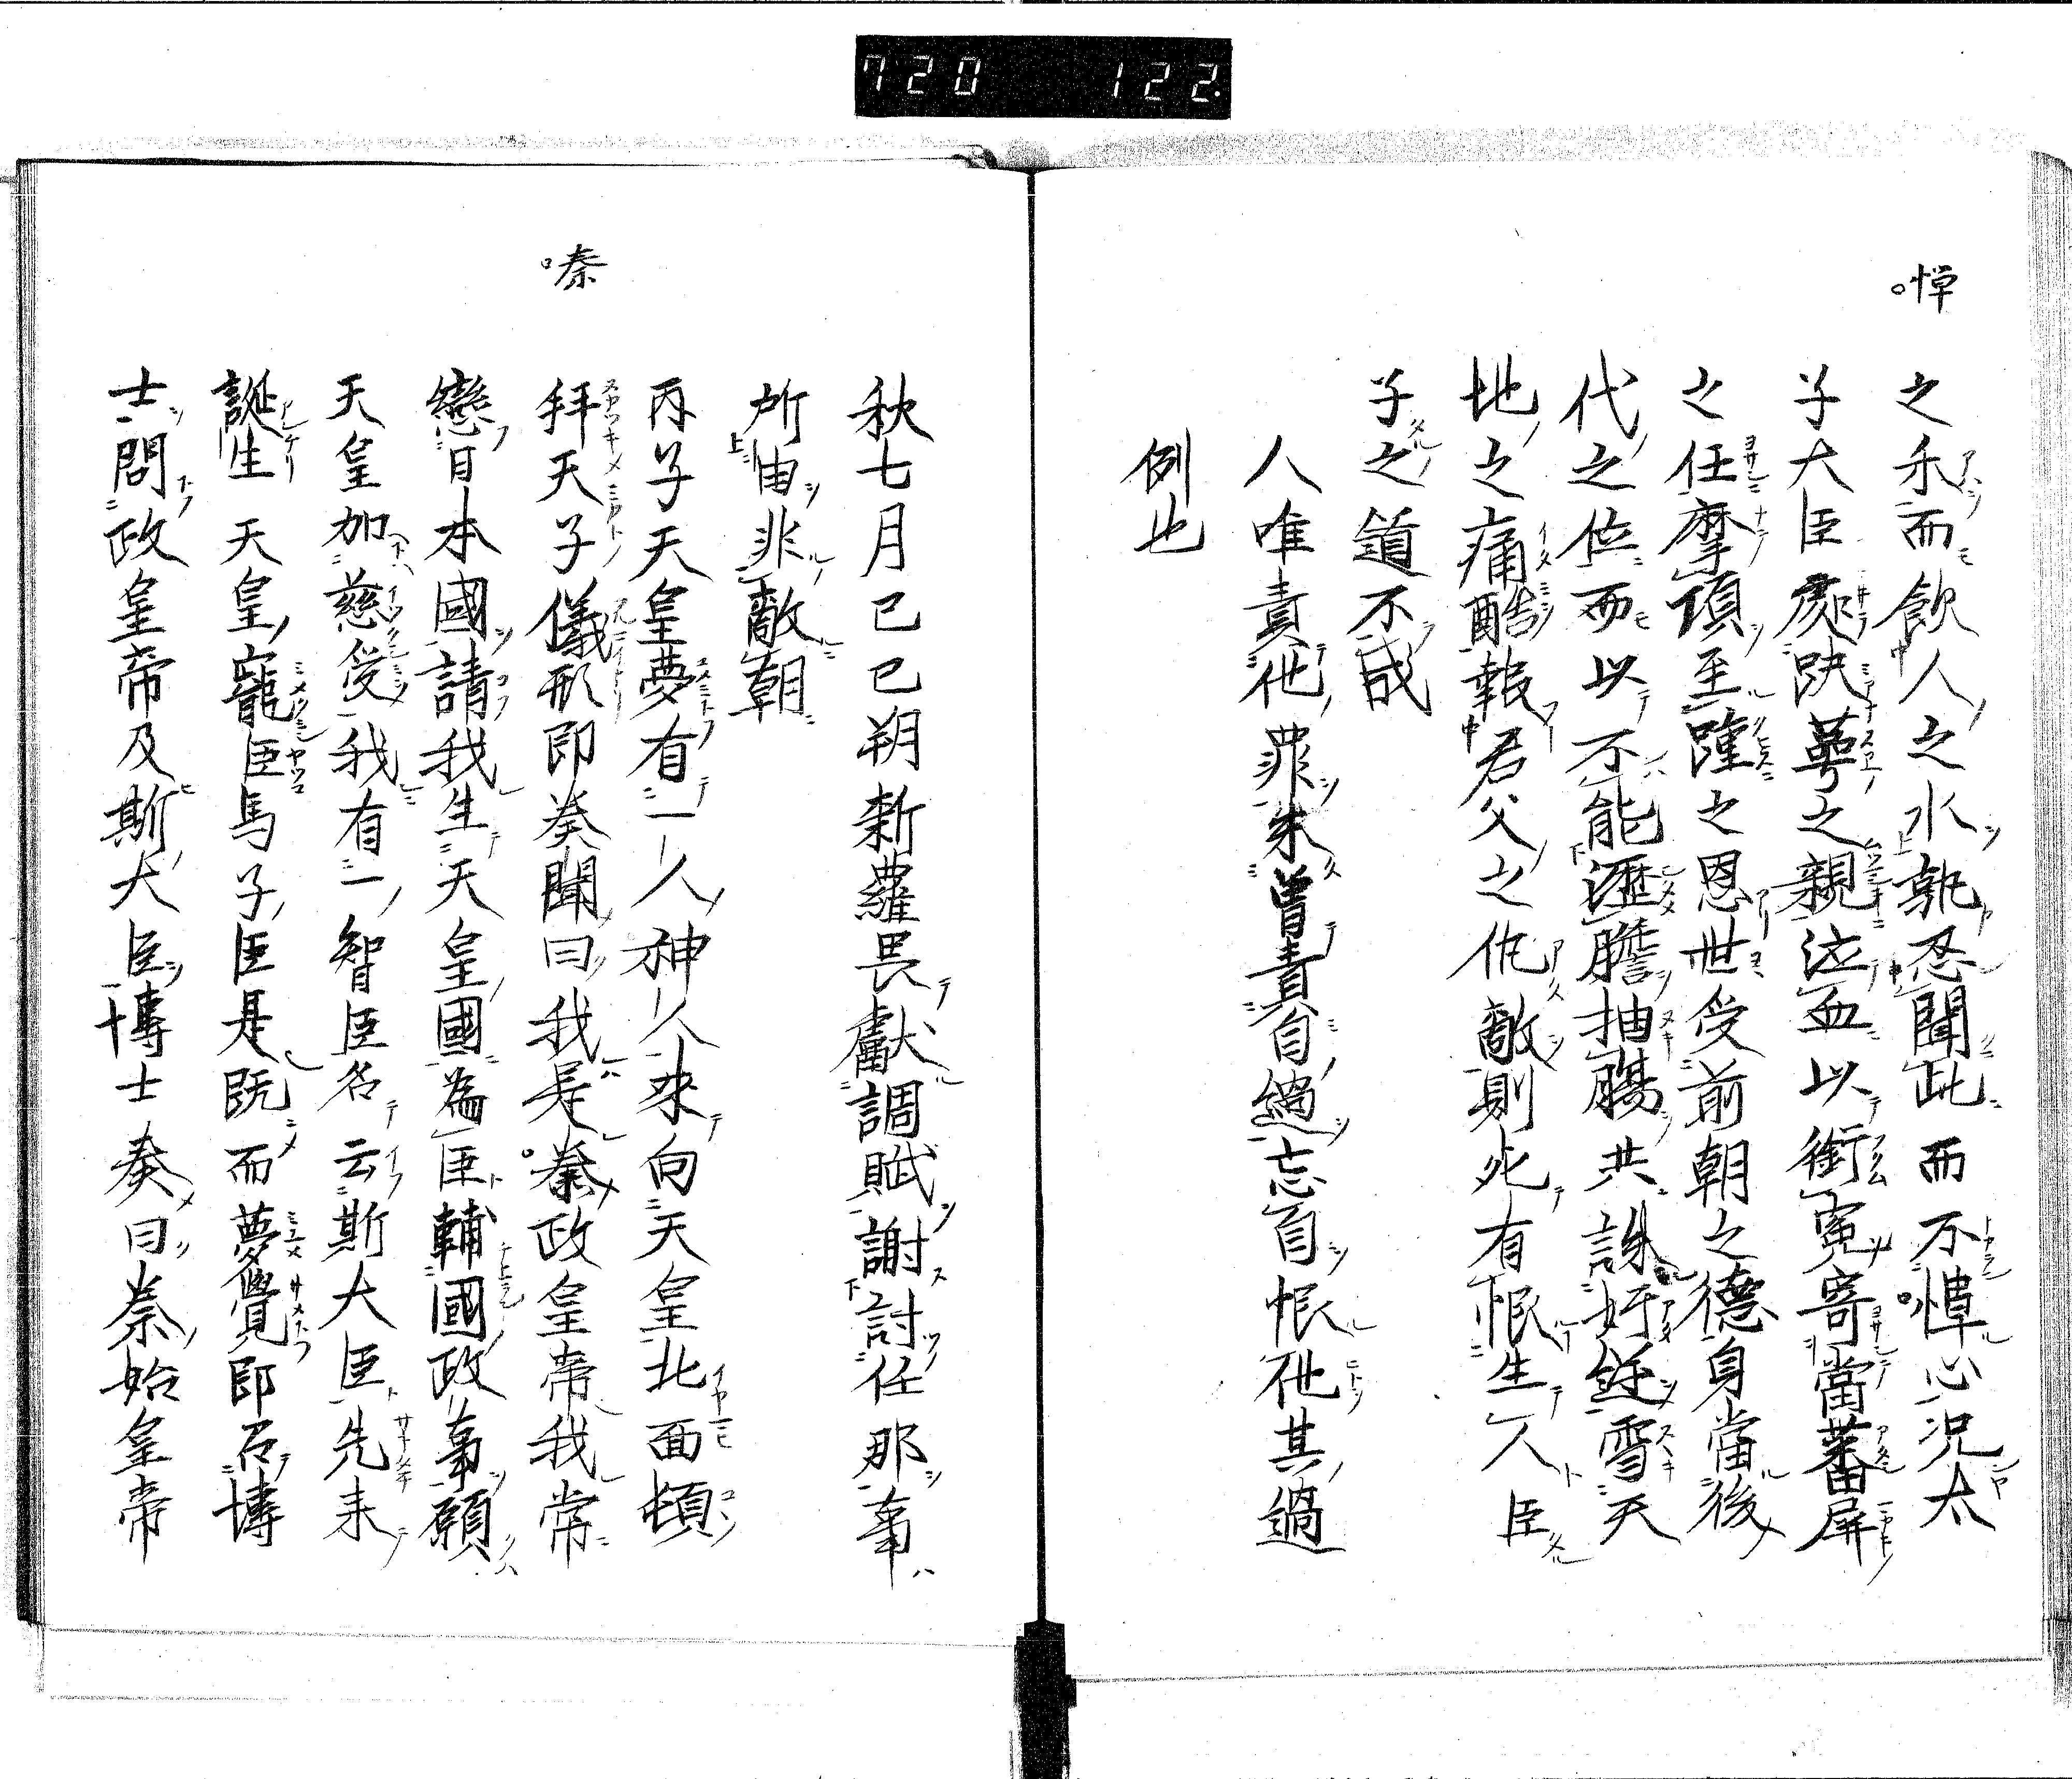 720 122.
。惲
之禾而飲人之水孰忍聞此而不悼心況太
子大臣處趺萼之親泣血以銜寃寄當蕃屏
之任摩頂至踵之恩世受前朝之德身當後
代之位而以不能瀝膽抽膓共誅奸逆雪天
地之痛酷報君父之仇敵則死有恨生人臣
子之道不成
人唯責他罪未曽責自過忘自恨他其過
例也
秋七月己巳朔新羅畏獻調賦謝討任那事
所由非敵朝
丙子天皇夢有一人神人来向天皇北面頓
拜天子儀形即奏聞曰我是秦政皇帝我常
戀日本國請我生天皇國為臣輔國政事願
天皇加慈受我有一智臣名云斯大臣先来
誕生天皇寵臣馬子臣是既而夢覺即召博
士問政皇帝及斯大臣博士奏曰秦始皇帝
。秦